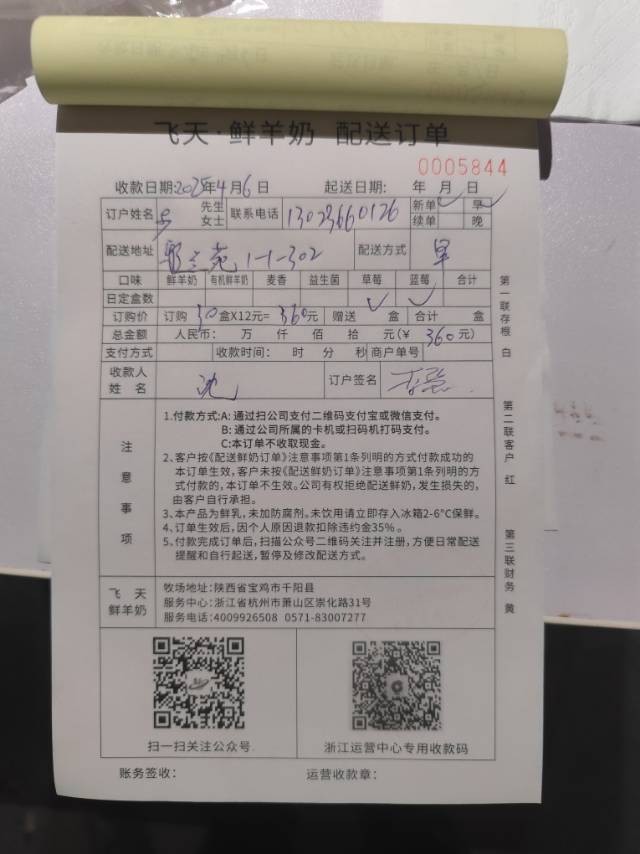 飞天·鲜羊奶 配送订单
0005844
收款日期:2025年4月6日 起送日期: 年 月 日
订户姓名 先生 女士 联系电话 13023660126 新单 续单 早 晚
配送地址 苑1-1-302 配送方式 早
口味 鲜羊奶 有机鲜羊奶 麦香 益生菌 草莓 蓝莓 合计
日定盒数
订购价 订购30盒X12元=360元 赠送 盒 合计 盒
总金额 人民币: 万 仟 佰 拾 元(¥ 360元)
支付方式 收款时间: 时 分 秒 商户单号
收款人姓名 沈 订户签名
注意事项
1.付款方式:A:通过扫公司支付二维码支付宝或微信支付。
B:通过公司所属的卡机或扫码机打码支付。
C:本订单不收取现金。
2.客户按《配送鲜奶订单》注意事项第1条列明的方式付款成功的
本订单生效,客户未按《配送鲜奶订单》注意事项第1条列明的方
式付款的,本订单不生效。公司有权拒绝配送鲜奶,发生损失的,
由客户自行承担。
3.本产品为鲜乳,未加防腐剂。未饮用请立即存入冰箱2-6°C保鲜。
4.订单生效后,因个人原因退款扣除违约金35%。
5.付款完成订单后,扫描公众号二维码关注并注册,方便日常配送
提醒和自行起送,暂停及修改配送方式。
飞天
鲜羊奶
牧场地址:陕西省宝鸡市千阳县
服务中心:浙江省杭州市萧山区崇化路31号
服务电话:4009926508 0571-83007277
扫一扫关注公众号
浙江运营中心专用收款码
账务签收: 运营收款章:
第一联存根 白
第二联客户 红
第三联财务 黄